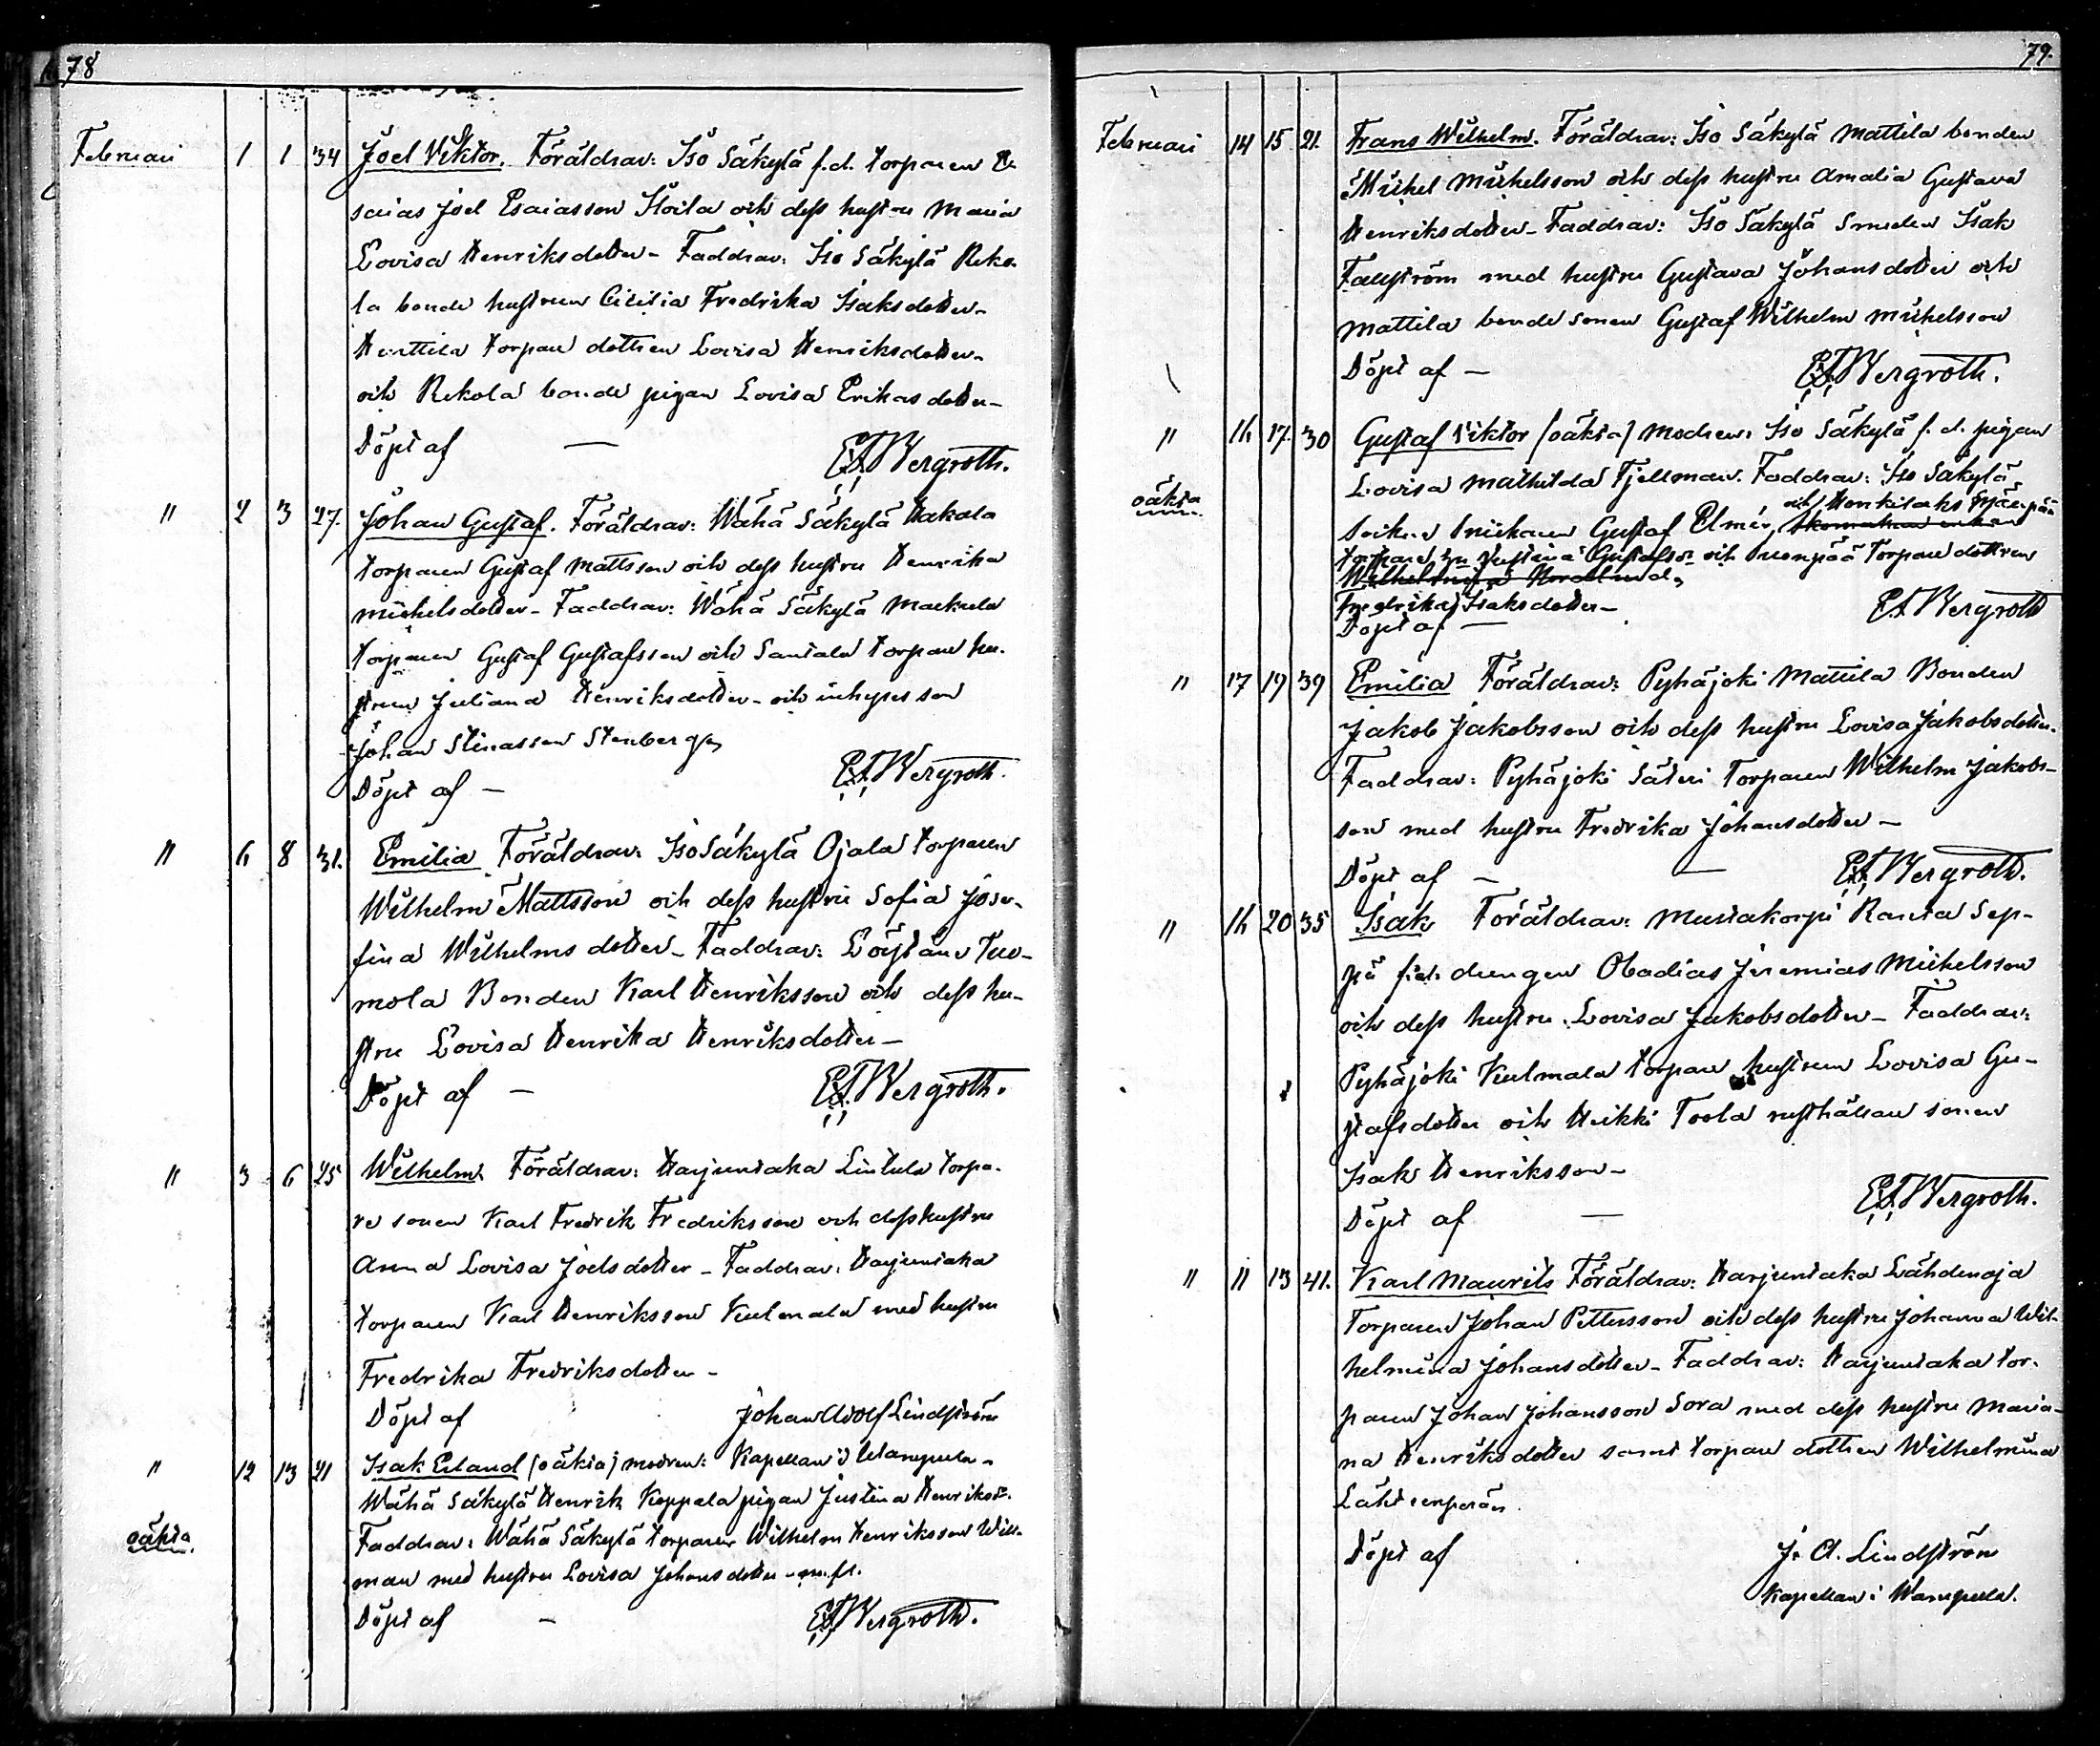 78
Februari 1 1 34 Joel Viktor. Föräldrar: Iso Säkylä f.d. torparen E
saias Joel Esaiasson Iloila och dess hustru Maria
Lovisa Henriksdotter - Faddrar: Iso Säkylä Reko-
la bonde hustrun Cicilia Fredrika Isaksdotter-
Henttila torpare dottren Lovisa Henriksdotter-
och Rekola bonde pigan Lovisa Erikas dotter-
Döpt af — Bergroth.
" 2 3 27. Johan Gustaf. Föräldrar: Wähä Säkylä Hakala
torparen Gustaf Mattsson och dess hustru Henrika
Mickelsdotter - Faddrar: Wähä Säkylä
torparen Gustaf Gustafsson och Santala torpare hu-
strun Juliana Henriksdotter - och inhyses son
Johan Stinasson Stenberg
Döpt af — Bergroth.
" 6 8 31. Emilia Föräldrar: Iso Säkylä Ojala torparen
Wilhelm Mattsson och dess hustru Sofia Jose-
fina Wilhelms dotter - Faddrar: Löytäne Tuo-
mola Bonden Karl Henriksson och dess hu-
stru Lovisa Henrika Henriksdotter -
Döpt af — Bergroth.
" 3 6 25 Wilhelm. Föräldrar: Harjuntaka Lintula torpa-
re sonen Karl Fredrik Fredriksson och dess hustru
Anna Lovisa Joelsdotter - Faddrar: Harjuntaka
torparen Karl Henriksson Kulmala med hustru
Fredrika Fredriksdotter -
Döpt af Johan Adolf Lindström
" 12 13 21 Isak Erland (oäkta) modren: Kapellan i Wampula -
Wähä Säkylä Henrik Keppala pigan Justina Henriksdr.
oäkta. Faddrar: Wähä Säkylä torparen Wilhelm Henriksson Will-
man med hustru Lovisa Johans dotter - m. fl.
Döpt af — Bergroth.
79.
Februari 14 15 21. Frans Wilhelm. Föräldrar: Iso Säkylä Mattila bonden
Mickel Mickelsson och dess hustru Amalia Gustava
Henriksdotter - Faddrar: Iso Säkylä Smeden Isak
Fallström med hustru Gustava Johansdotter och
Mattila bonde sonen Gustaf Wilhelm Mickelsson
Döpt af — Bergroth.
" 16 17. 30 Gustaf Viktor (oäkta) Modren: Iso Säkylä f. d. pigan
Lovisa Mathilda Fjellman. Faddrar: Iso Säkylä
oäkta
och Honkilaks Mäenpää
Socken snickaren Gustaf Elmén,
torpare Justina Gustafsdr och torpare dottren
Wilhelmina Nordlund,
Fredrika Isaksdotter -
Döpt af — Bergroth
" 17 19 39 Emilia Föräldrar: Pyhäjoki Mattila Bonden
Jakob Jakobsson och dess hustru Lovisa Jakobsdotter.
Faddrar: Pyhäjoki Säteri Torparen Wilhelm Jakobs-
son med hustru Fredrika Johansdotter -
Döpt af — Bergroth.
" 16 20 35 Isak Föräldrar: Mustakorpi Ranta Sep-
pä f.d. drengen Obadias Jeremias Mickelsson
och dess hustru Lovisa Jakobsdotter - Faddrar:
Pyhäjoki Kulmala torpare hustrun Lovisa Gu-
stafsdotter och Heikki Toola rusthållare sonen
Isak Henriksson -
Döpt af — Bergroth.
" 11 13 41. Karl Maurits Föräldrar: Harjuntaka Lähdenoja
Torparen Johan Pettersson och dess hustru Johanna Wil-
helmina Johansdotter - Faddrar: Harjuntaka tor-
paren Johan Johansson Sora med dess hustru Maria-
na Henriksdotter samt torpare dottren Wilhelmina
Lähteenperän
Döpt af J. A. Lindström
Kapellan i Wampula.